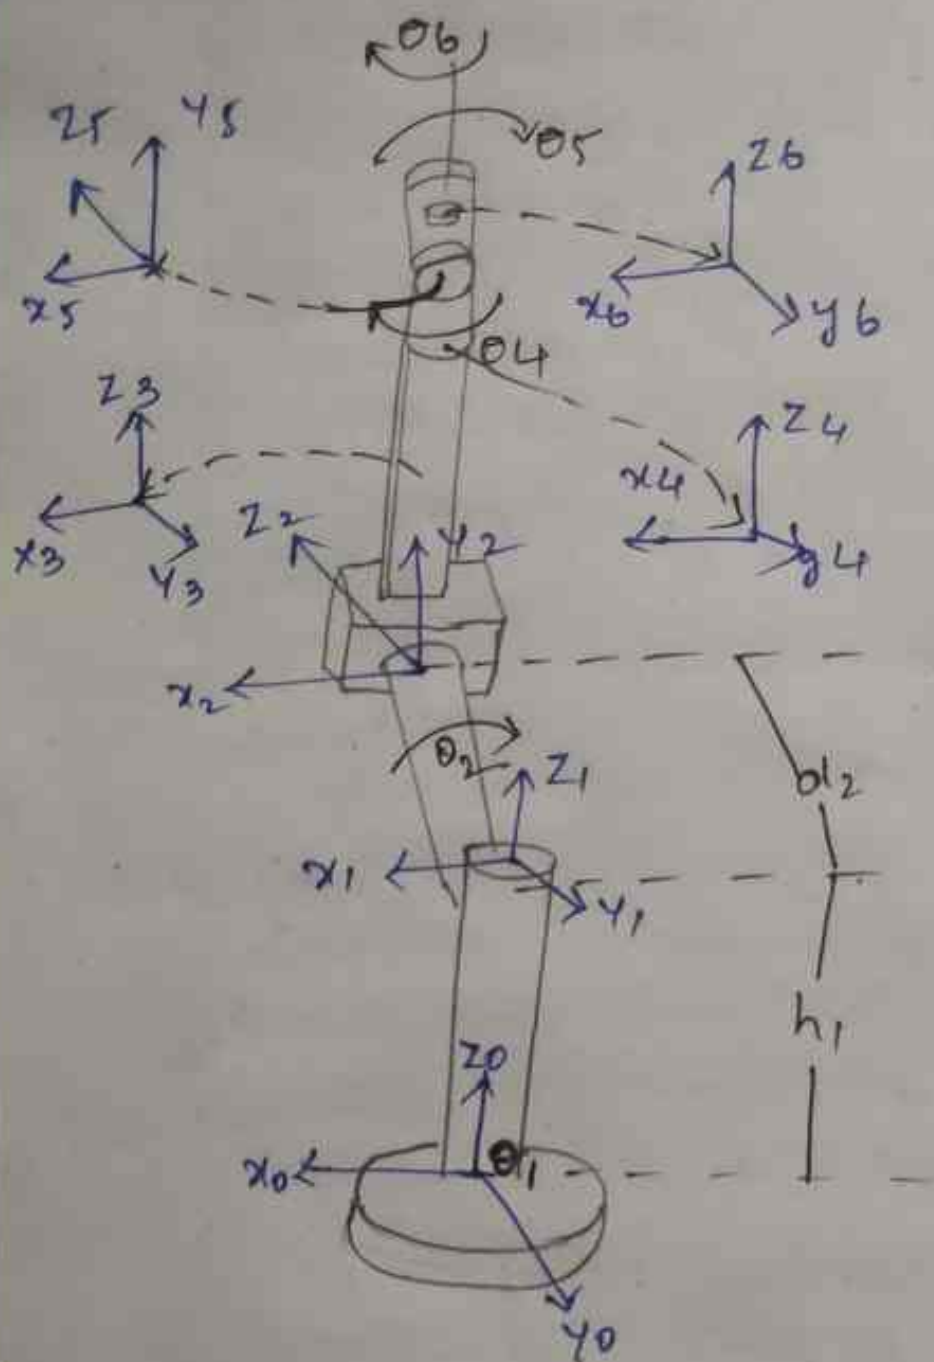 θ6
Z5 Y5
θ5
Z6
x5
x6
y6
θ4
Z3
Z4
x4
x3
Y3
Z2
Y2
y4
x2
θ2
Z1
d2
x1
Y1
h1
Z0
x0
θ1
Y0